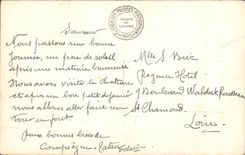 Souvenir
Nous passons une bonne
journée, un peu de soleil
après une matinée brumeuse
Nous avons visité le chateau
et après un bon petit déjeuner
nous allons aller faire un
tour en foret.
Deux bonnes bises de
Compiègne.
Mlle S. Briez
Regina Hotel
9 Boulevard Waldeck Rousseau
St Chamond
Loire